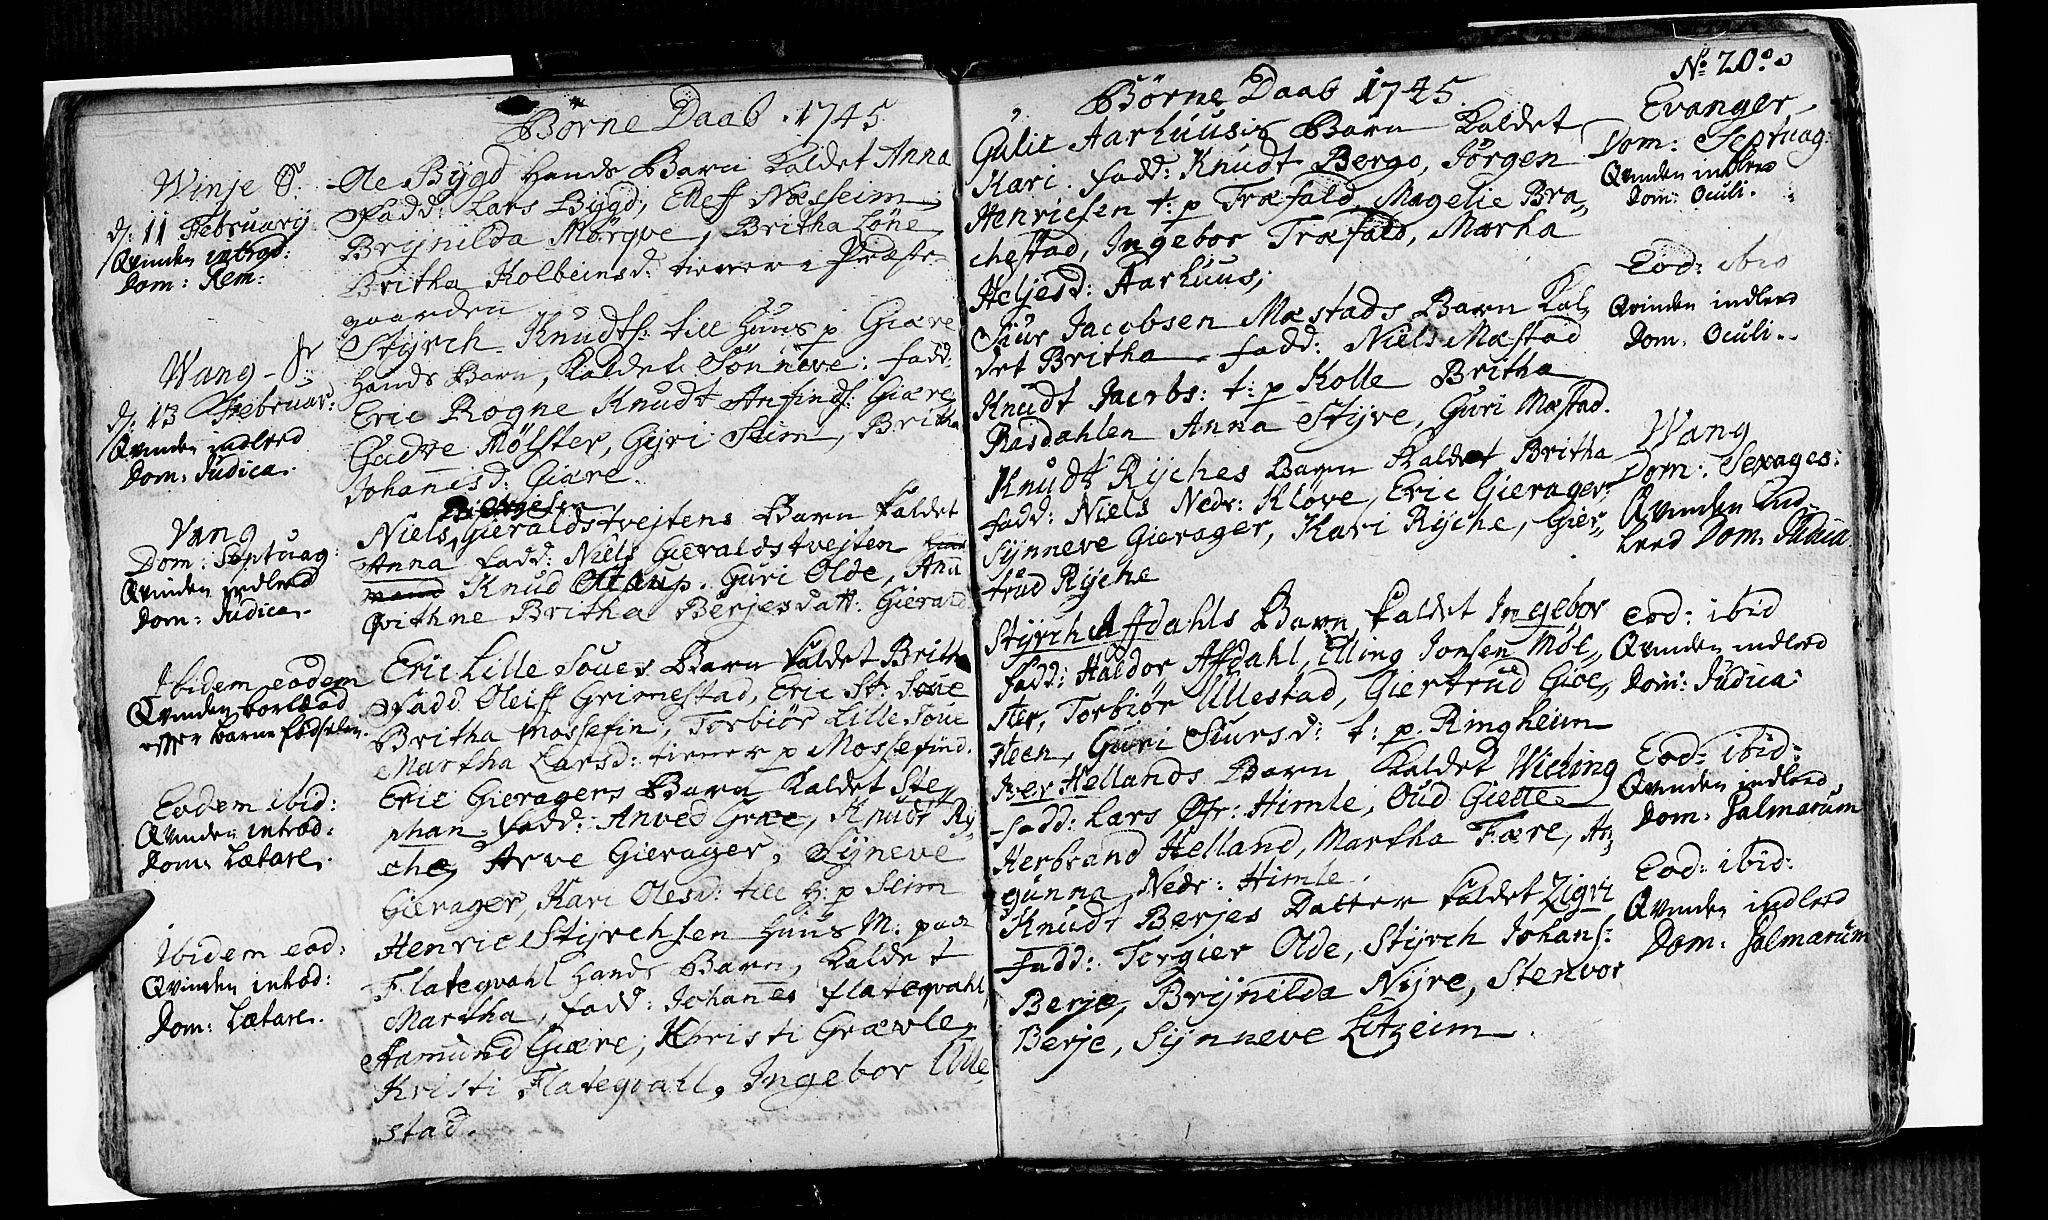 Börne Daab 1745
Winje S:
d: 11 Februarij
Qvinden introd:
Dom: Rem:
Ole Bygd Hands Barn kaldet Anna
Fadd: Lars Bygd, Elleff Næsseim,
Brynilda Mörqve, Britha Löne,
Britha Kolbeinsd: tienere i Præste-
gaarden
Wang
d: 13 Februar:
Qvinden indleed
Dom: Judica.
Styrch Knudts: till Huus p Giære
Hands Barn, kaldet Sönneve: fadd:
Eric Rogne Knudt Anfinds: Giære
Gudve Mölster, Gyri Seim, Britha
Johannisd: Giære.
Vang
Dom: Septuag:
Qvinden indleed
Dom: Judica.
Niels Gieraldstvejtens Barn kaldet
Anna fadd: Niels Gieraldstvejten
Knud Guri Olde, Anu
Qvithne Britha Berjesdatt: Gierald
Ibidem eodem
Qvinden bortdöd
effter barne födselen.
Eric Lille Soues Barn kaldet Britha
Fadd. Oleiff Grimestad, Eric St: Soue
Britha Mossefin, Torbiör Lille Soue
Martha Larsd: tiener p Mossefind.
Eodem ibid:
Qvinden introd:
Dom: Lætare.
Eric Gieragers Barn kaldet Ste-
phan. fadd: Anved Græe, Knudt Ry-
che, Arve Gierager, Syneve
Gierager, Kari Olesd: till H: p Seim
Ibidem eod:
Qvinden introd:
Dom: Lætare.
Henric Styrchsen Huus M: paa
Flateqvahl Hands Barn, kaldet
Martha, fadd: Johannes Flateqvahl,
Aamund Giære, Christi Grævle,
Kristi Flateqvall, Ingebor Ulle
stad.
No 20.
Börne Daab 1745.
Evanger
Dom: Septuag:
Qvinden indleed
Dom: Oculi.
Gulic Aarhuusis Barn kaldet
Kari. fadd: Knudt Bergo, Jörgen
Henricsen t: p Træfald, Magelie Bra-
chestad, Ingebor Træfald, Marha
Heljesd: Aarhuus,
Eod: ibid
Qvinden indleed
Dom: Oculi.
Siur Jacobsen Mæstads Barn kal-
det Britha. fadd: Niels Mæstad
Knudt Jacobs: t: p Kolle Britha
Rasdahlen Anna Styve, Guri Mæstad.
Wang
Dom: Sexages:
Qvinden ind-
leed Dom: Judica.
Knudt Ryches Barn kaldet Britha
fadd: Niels Nedr: Klöve, Eric Gierager,
Synneve Gierager, Kari Ryche, Gier-
trud Ryche
eod: ibid
Qvinden indleed
Dom: Judica:
Styrch Affdahls Barn kaldet Ingebor
fadd: Haldor Afdahl, Elling Jonsen Möl-
ster, Torbiör Ullestad, Giertrud Gioe-
steen, Guri Siursd: t: p. Ringheim
Eod: ibid:
Qvinden indleed
Dom: Palmarum
Iver Hellands Barn kaldet Wiching
fadd: Lars Öfr: Himle, Oud Giette
Herbrand Helland, Martha Fære, A-
gunna Nedr: Himle.
Eod: ibid:
Qvinden indleed
Dom: Palmarum
Knudt Berjes Datter kaldet Zigri
Fadd: Torgier Olde, Styrch Johans:
Berje, Brynilda Nyre, Stenvor
Berje, Synneve Litzeim.